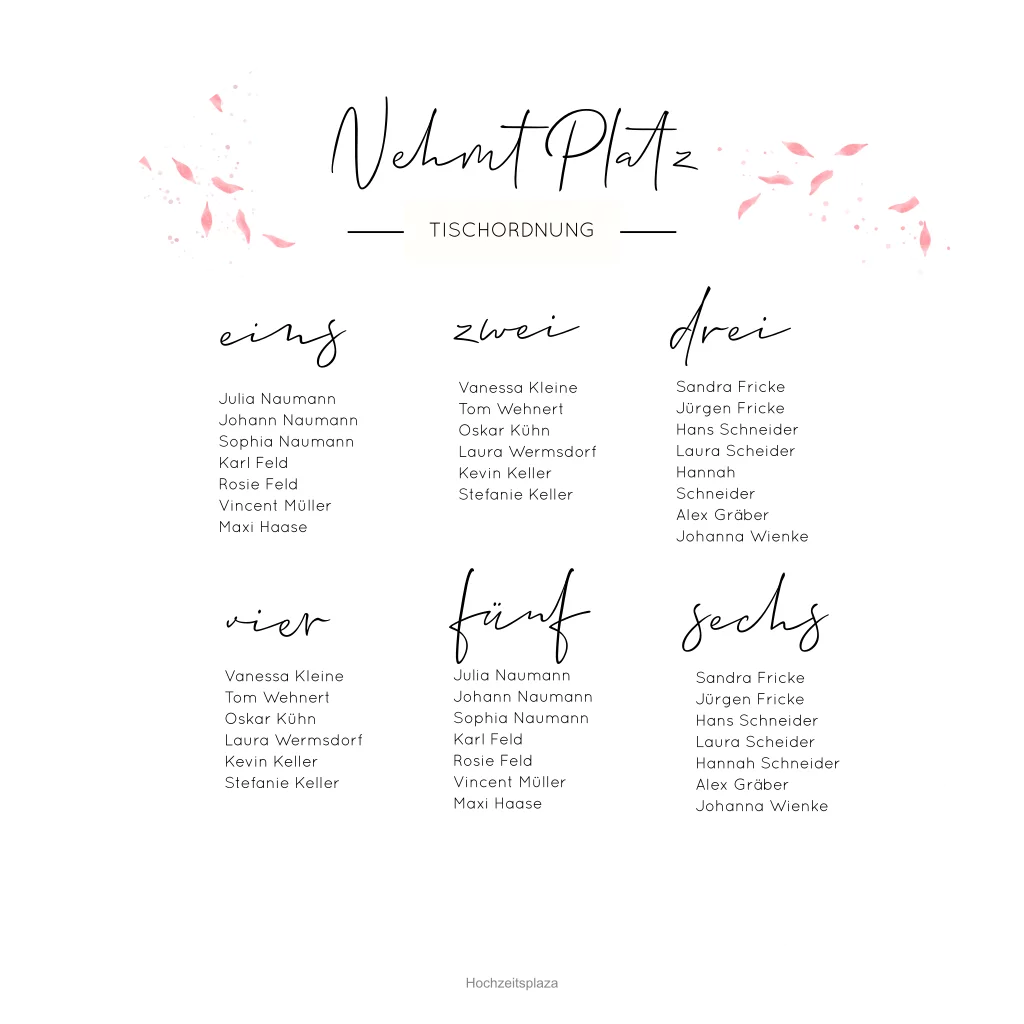 Nehmt Platz
TISCHORDNUNG
eins
Julia Naumann
Johann Naumann
Sophia Naumann
Karl Feld
Rosie Feld
Vincent Müller
Maxi Haase
zwei
Vanessa Kleine
Tom Wehnert
Oskar Kühn
Laura Wermsdorf
Kevin Keller
Stefanie Keller
drei
Sandra Fricke
Jürgen Fricke
Hans Schneider
Laura Scheider
Hannah
Schneider
Alex Gräber
Johanna Wienke
vier
Vanessa Kleine
Tom Wehnert
Oskar Kühn
Laura Wermsdorf
Kevin Keller
Stefanie Keller
fünf
Julia Naumann
Johann Naumann
Sophia Naumann
Karl Feld
Rosie Feld
Vincent Müller
Maxi Haase
sechs
Sandra Fricke
Jürgen Fricke
Hans Schneider
Laura Scheider
Hannah Schneider
Alex Gräber
Johanna Wienke
Hochzeitsplaza